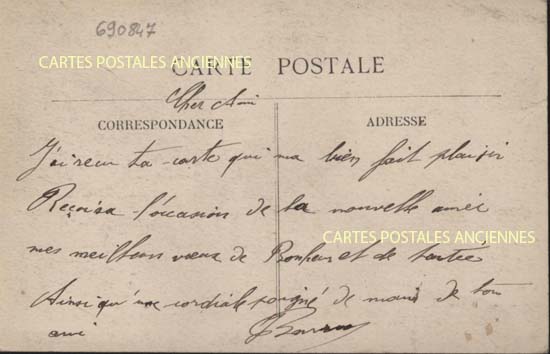 690847
CARTES POSTALES ANCIENNES
CARTE POSTALE
Cher Ami
CORRESPONDANCE
ADRESSE
J'ai reçu ta carte qui ma bien fait plaisir
Reçois a l'occasion de la nouvelle année
CARTES POSTALES ANCIENNES
mes meilleurs vœux de Bonheur et de Santée
Ainsi qu'une cordiale poigné de main de ton
ami